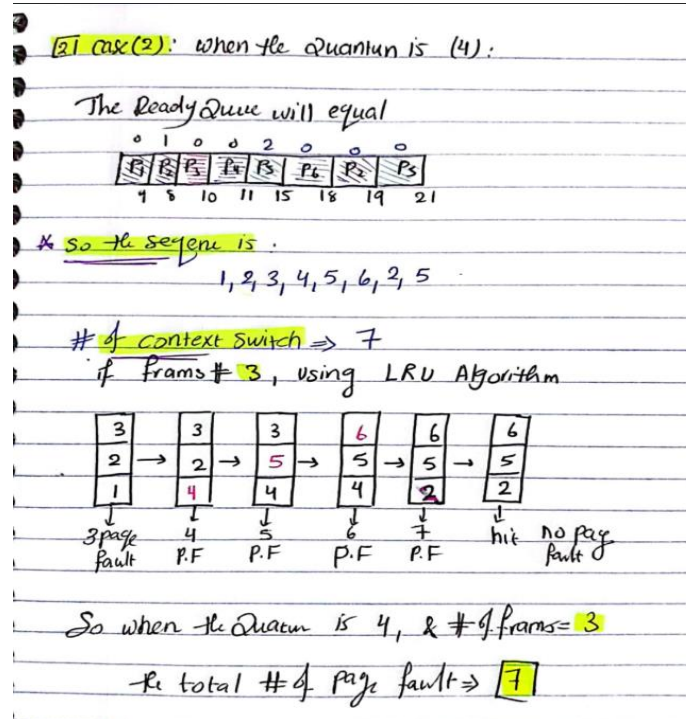 [2] case(2): when the Quantun is (4):
The Ready Queue will equal
0 1 0 0 2 0 0 0
P1 P2 P3 P4 P5 P6 P2 P5
4 8 10 11 15 18 19 21
* so the seqene is :
1, 2, 3, 4, 5, 6, 2, 5
# of context switch ⇒ 7
if frams # 3, using LRU Algorithm
3 3 3 6 6 6
2 → 2 → 5 → 5 → 5 → 5
1 4 4 4 2 2
↓ ↓ ↓ ↓ ↓ ↓
3 page 4 5 6 7 hit no pag
fault P.F P.F P.F P.F fault
So when the Quatun is 4, & # of frams= 3
the total # of page fault ⇒ 7